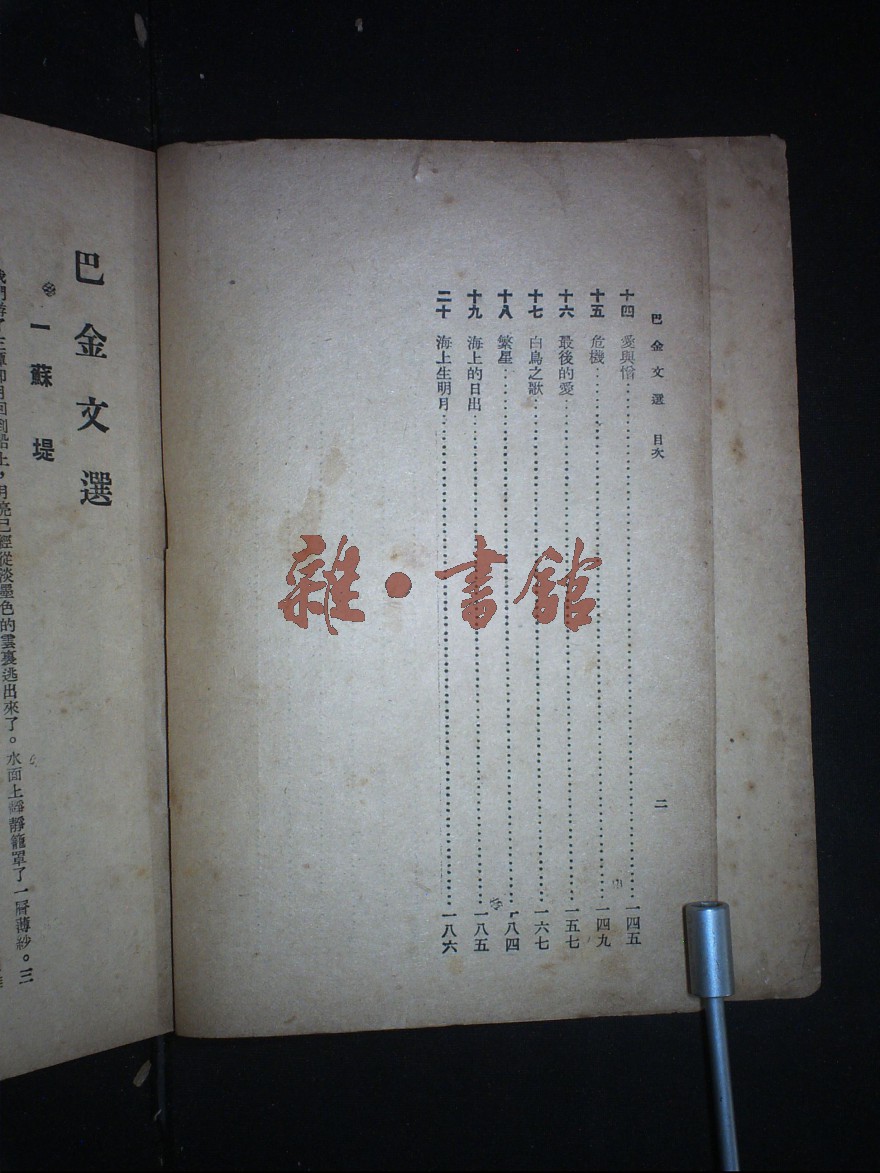 巴金文選 目次 二
十四 愛與憎 一四五
十五 危機 一四九
十六 最後的愛 一五七
十七 白鳥之歌 一六七
十八 繁星 一八四
十九 海上的日出 一八五
二十 海上生明月 一八六
雜·書館
巴金文選
一 蘇堤
回到船上，月亮已經從淡墨色的雲裏逃出來了。水面上靜靜籠罩了一層薄紗。三